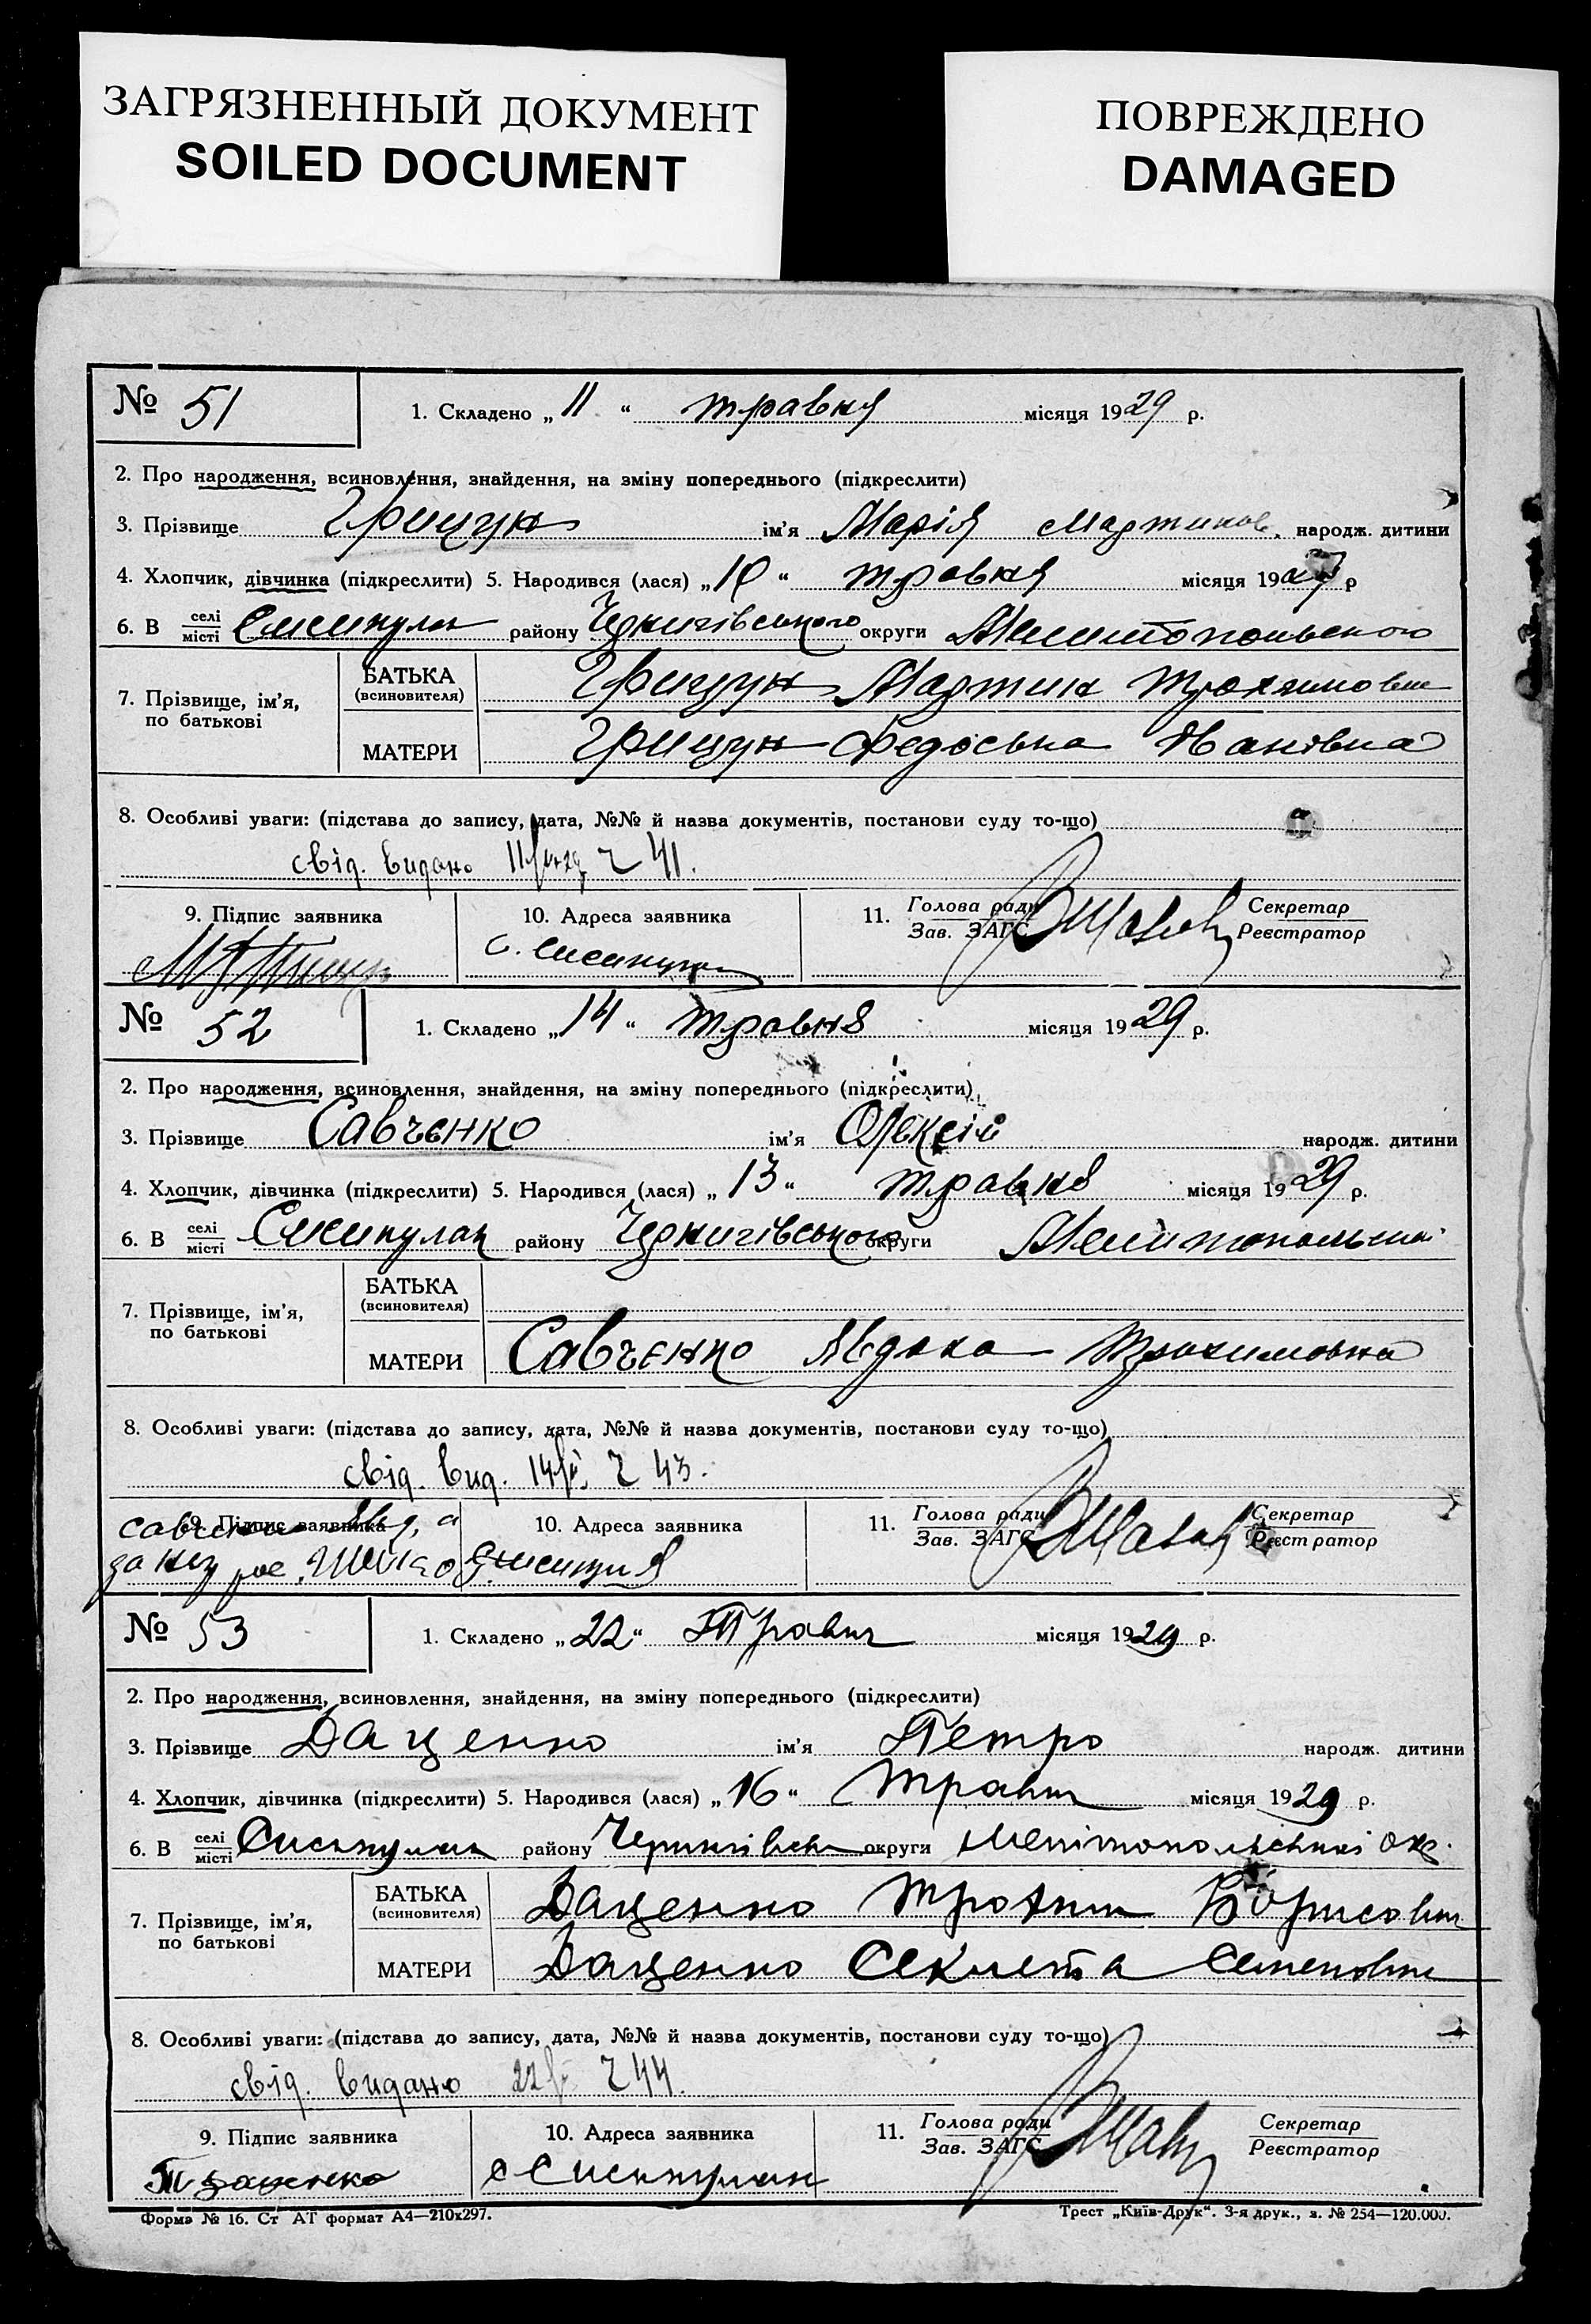 ЗАГРЯЗНЕННЫЙ ДОКУМЕНТ
SOILED DOCUMENT
ПОВРЕЖДЕНО
DAMAGED
№ 51
1. Складено „ 11 “ травня місяця 1929 р.
2. Про народження, всиновлення, знайдення, на зміну попереднього (підкреслити)
3. Прізвище Грицун ім'я Марія Мартинов. народж. дитини
4. Хлопчик, дівчинка (підкреслити) 5. Народився (лася) „ 10 “ травня місяця 19 р
6. В селі/місті району Чернигівського округи Мелитопольского
7. Прізвище, ім'я, по батькові
БАТЬКА (всиновителя) Грицун Мартин
МАТЕРИ Грицун Федоська Іванівна
8. Особливі уваги: (підстава до запису, дата, №№ й назва документів, постанови суду то-що)
свід. видано ч 41.
9. Підпис заявника
10. Адреса заявника
11. Голова ради/Зав. ЗАГС
Секретар/Реєстратор
№ 52
1. Складено „ 14 “ травня місяця 1929 р.
2. Про народження, всиновлення, знайдення, на зміну попереднього (підкреслити)
3. Прізвище Савченко ім'я Олексій народж. дитини
4. Хлопчик, дівчинка (підкреслити) 5. Народився (лася) „ 13 “ травня місяця 1929 р.
6. В селі/місті району Чернигівського округи
7. Прізвище, ім'я, по батькові
БАТЬКА (всиновителя)
МАТЕРИ Савченко Явдоха Трохимовна
8. Особливі уваги: (підстава до запису, дата, №№ й назва документів, постанови суду то-що)
свід. вид. ч 43.
9. Підпис заявника
10. Адреса заявника
11. Голова ради/Зав. ЗАГС
Секретар/Реєстратор
№ 53
1. Складено „ 22 “ Травня місяця 1929 р.
2. Про народження, всиновлення, знайдення, на зміну попереднього (підкреслити)
3. Прізвище Даценко ім'я Петро народж. дитини
4. Хлопчик, дівчинка (підкреслити) 5. Народився (лася) „ 16 “ Травня місяця 1929 р.
6. В селі/місті району округи Мелітопольської окр.
7. Прізвище, ім'я, по батькові
БАТЬКА (всиновителя) Даценко Трохим Борисович
МАТЕРИ Даценко Секлета Семеновна
8. Особливі уваги: (підстава до запису, дата, №№ й назва документів, постанови суду то-що)
свід. видано ч 44.
9. Підпис заявника
10. Адреса заявника
11. Голова ради/Зав. ЗАГС
Секретар/Реєстратор
Форма № 16. Ст АТ формат А4—210x297.
Трест „Київ-Друк“. 3-я друк., з. № 254—120.000.